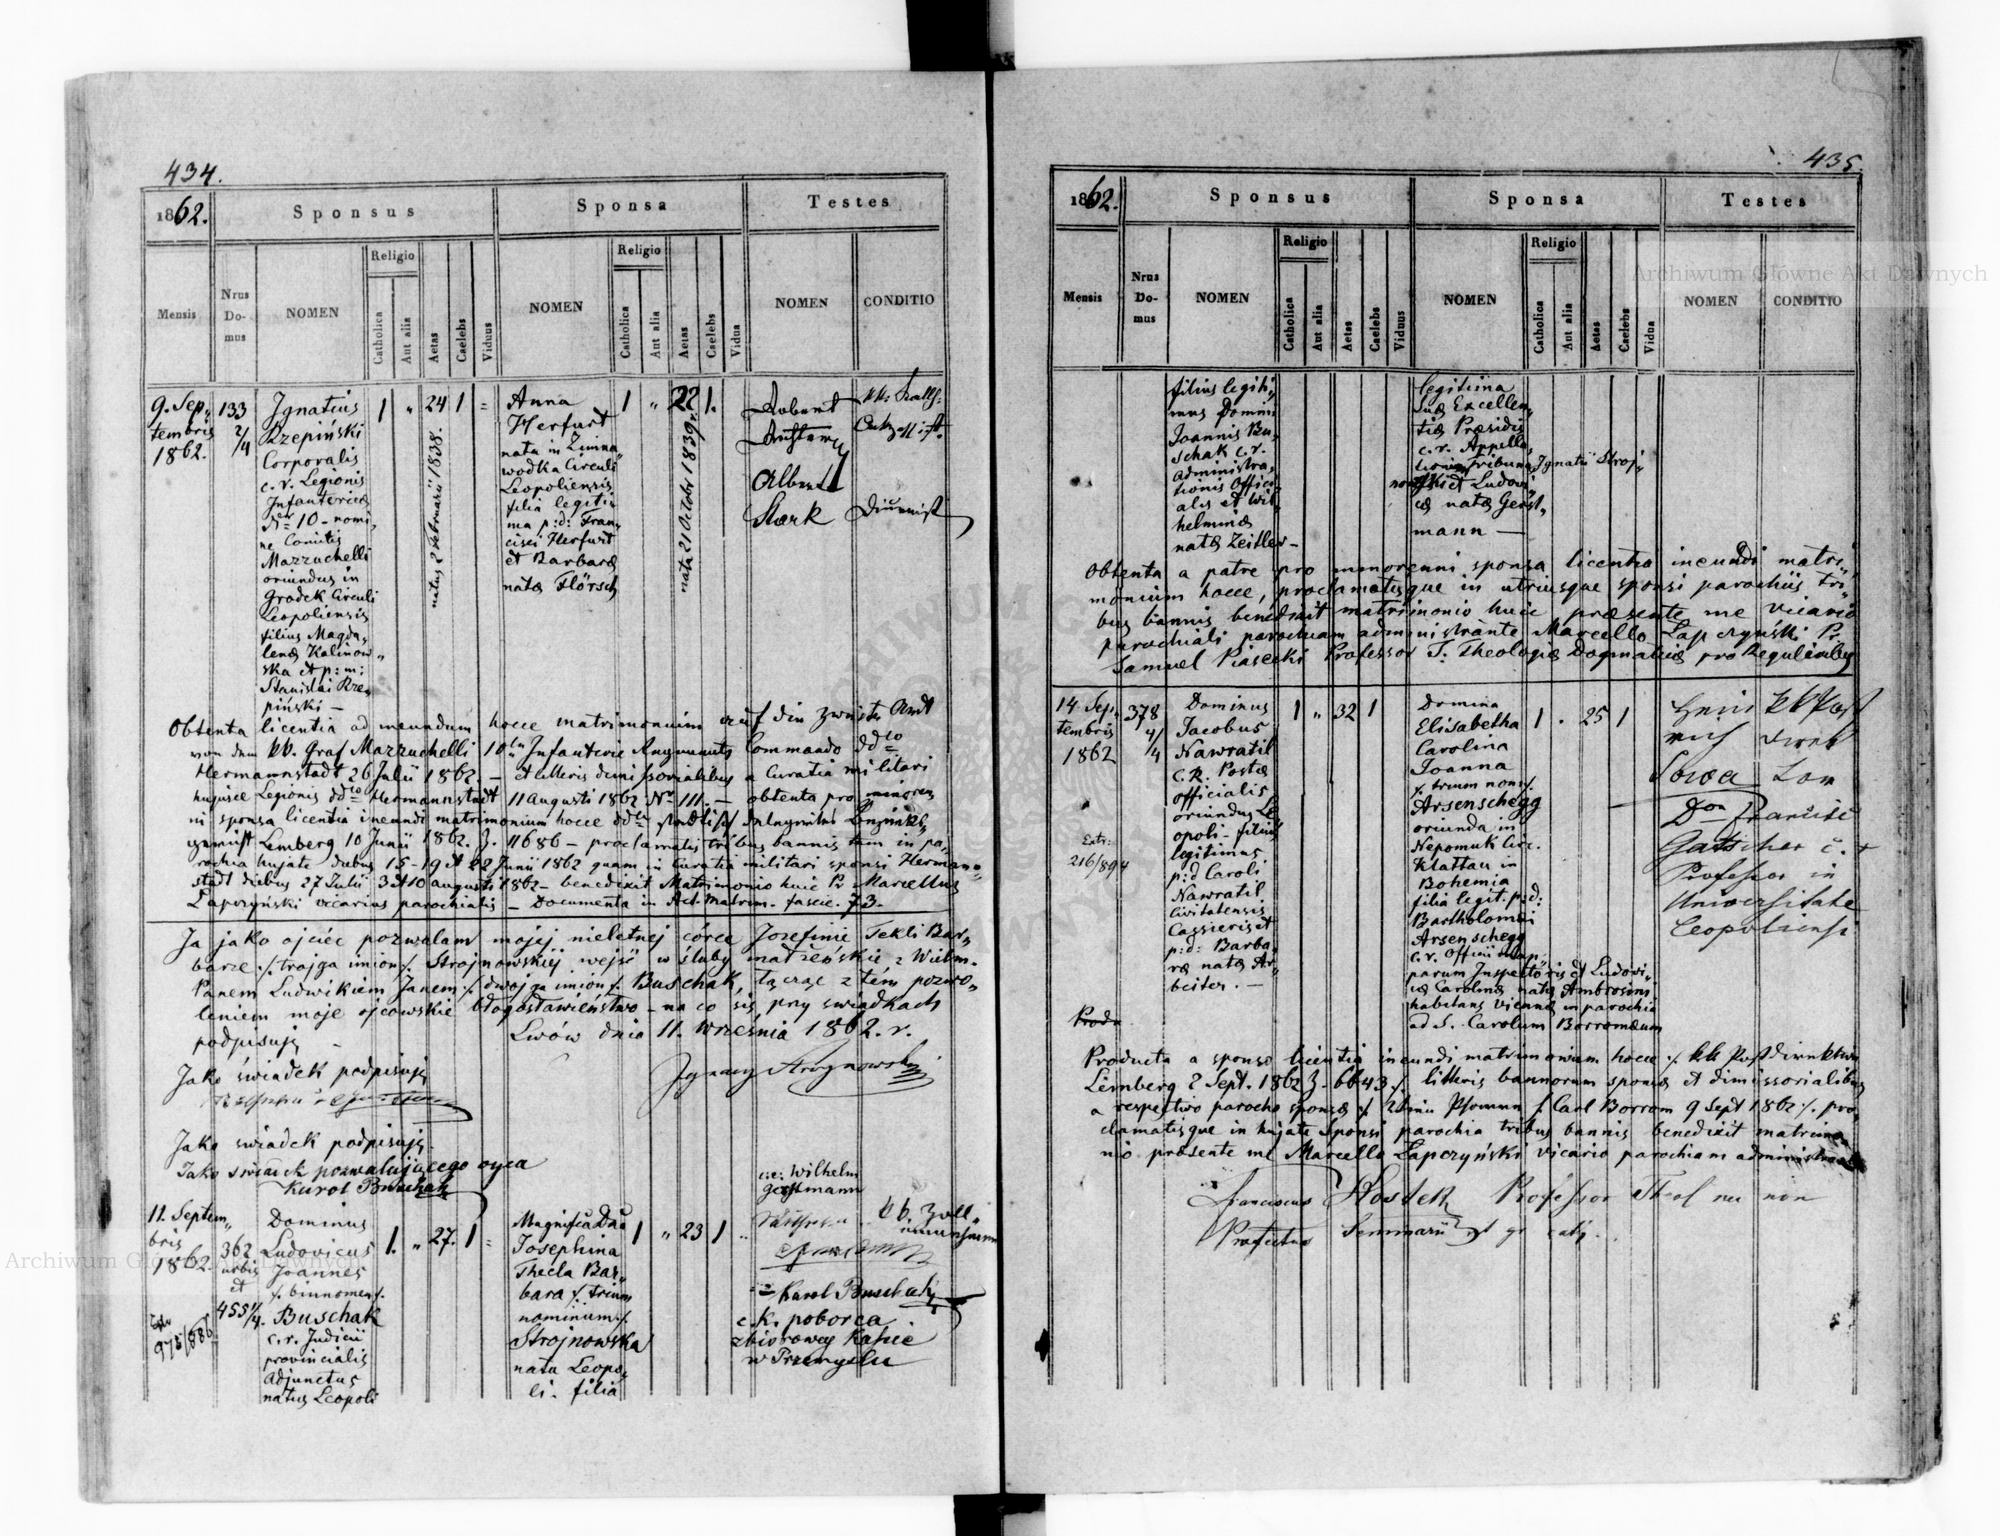 434.
1862.
Sponsus
Sponsa
Testes
Mensis
Nrus Domus
NOMEN
Religio
Catholica
Aut alia
Aetas
Caelebs
Viduus
NOMEN
Religio
Catholica
Aut alia
Aetas
Caelebs
Vidua
NOMEN
CONDITIO
9. Sep„
tembris
1862.
133
2/4
Ignatius
Rzepiński
Corporalis
c. r. Legionis
Infanteriae
Nro 10 - nomi„
ne Comitis
Mazzuchelli
oriundus in
Grodek Circuli
Leopoliensis
filius Magda„
lenae Kalinow„
ska et p: m:
Stanislai Rze„
piński —
1 „ 24 1 „
natus 2 Februarii 1838.
Anna
Herfurt
nata in Zimna„
wodka Circuli
Leopoliensis
filia legiti„
ma p: d: Fran„
cisci Herfurt
et Barbarae
natae Flörsch
1 „ 22 1.
nata 21 Octobr 1839
Robert
Albert
Stark
Diurnist
Obtenta licentia ad ineundum hocce matrimonium auf die zweite Andt
von dem kk. Graf Mazzuchelli 10ten Infanterie Regiments Commando ddto
Hermannstadt 26 Julii 1862. — et litteris dimissorialibus a Curatia militari
hujusce Legionis ddto Hermannstadt 11 Augusti 1862 No 111. — obtenta pro minoren
ni sponsa licentia ineundi matrimonium hocce ddto
Lemberg 10 Junii 1862. Z. 11686 — proclamatis tribus bannis tum in pa„
rochia hujate diebus 15 - 19 et 22 Junii 1862 quam in Curatia militari sponsi Herman„
stadt diebus 27 Julii 3 et 10 augusti 1862 — benedixit Matrimonio huic Pr. Marcellus
Lapczyński vicarius parochialis — Documenta in Act. Matrim. fascic. 73.
Ja jako ojciec pozwalam mojej nieletnej córce Jozefinie Tekli Bar„
barze /: trojga imion :/ Strojnowskiej wejść w śluby małżeńskie z Wielm.
Panem Ludwikiem Janem /: dwojga imion :/ Buschak, łącząc z tém pozwo„
leniem moje ojcowskie błogosławieństwo — na co się przy świadkach
podpisuję —
Lwów dnia 11. września 1862. r.
Ignacy Strojnowski
Jako świadek podpisuję
Jako świadek podpisuję.
Jako swiadek pozwalającego ojca
Karol Buschak
11. Septem„
bris
1862.
973/886
362
urbis
et
455 1/4.
Dominus
Ludovicus
Joannes
/: binnomen :/
Buschak
c. r. Judicii
provincialis
Adjunctus
natus Leopoli
1. „ 27. 1 „
Magnifica Dna
Josephina
Thecla Bar„
bara /: trium
nominium :/
Strojnowska
nata Leopo„
li. filia
1 „ 23 1 „
Wilhelm
Gerstmann
Karol Buschak
c. k. poborca
zbiorowej Kasie
w Przemyslu
435.
1862.
Sponsus
Sponsa
Testes
Mensis
Nrus Domus
NOMEN
Religio
Catholica
Aut alia
Aetas
Caelebs
Viduus
NOMEN
Religio
Catholica
Aut alia
Aetas
Caelebs
Vidua
NOMEN
CONDITIO
filius legiti„
mus Domini
Joannis Bu„
schak c. r.
administra„
tionis Offici„
alis et Wil„
helminae
natae Zeitler —
legitima
Suae Excellen„
tiae Praesidis
c. r. Appella„
tionis Tribuna„ Ignatii Stroj„
nowski et Ludovi„
cae natae Gerst„
mann —
Obtenta a patre pro minorenni sponsa licentia ineundi matri„
monium hocce, proclamatisque in utriusque sponsi parochiis tri„
bus bannis benedixit matrimonio huic praesente me Vicario
parochiali parochiam administrante Marcello Lapczyński Pr.
Samuel Piasecki Professor S. Theologiae Dogmaticae pro Regularibus
14 Sep„
tembris
1862
Extr:
216/894
378
4/4
Dominus
Jacobus
Nawratil
c. R. Postae
officialis
oriundus Le„
opoli - filius
legitimus
p: d Caroli
Nawratil
Civitatensis
Cassieris et
p: d: Barba„
rae natae Ar„
beiter. —
1 „ 32 1
Domina
Elisabetha
Carolina
Joanna
/: trium nom :/
Arsenschegg
oriunda in
Nepomuk Circ.
Klattau in
Bohemia
filia legit. p: d:
Bartholomaei
Arsenschegg
c. r. Officii
parum Inspectoris et Ludovi„
cae Carolinae natae Ambrosini
habitans Viennae in parochia
ad S. Carolum Borromaeum
1 . 25 1
Sowa
Don Francisc
Gatscher c. r
Professor in
Universitate
Leopoliensi
Produ
Producta a sponso licentia ineundi matrimonium hocce /: kk Postdirection
Lemberg 2 Sept. 1862 Z. 6643 :/ litteris bannorum sponsae et dimissorialibus
a respectivo parocho sponsae /: Wien Pfarre St Carl Borrom 9 Sept 1862 :/. pro„
clamatisque in hujate Sponsi parochia tribus bannis benedixit matrimo„
nio praesente me Marcello Lapczyński vicario parochiam administrante
Franciscus Kostek Professor Theol
Praefectus Seminarii
Archiwum Główne Akt Dawnych
Archiwum Główne Akt Dawnych